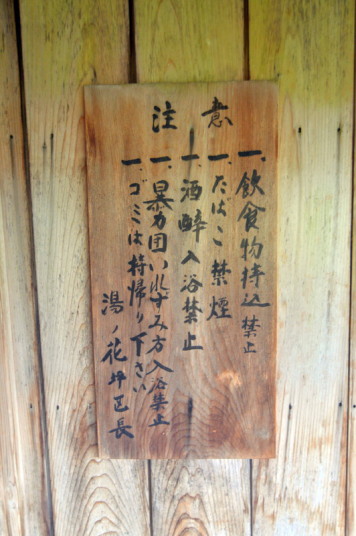 注意
一、飲食物持込禁止
一、たばこ禁煙
一、酒酔入浴禁止
一、暴力団いれずみ方入浴禁止
一、ゴミは持帰り下さい
湯ノ花区長